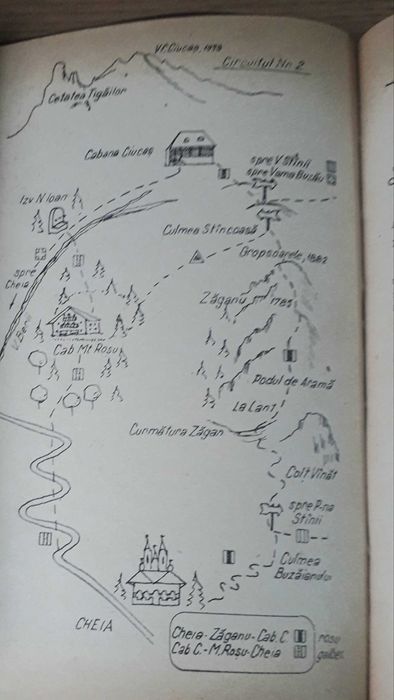 Vf. Ciucaș, 1959
Circuitul Nr. 2
Cetatea Tigăilor
Cabana Ciucaș
spre V. Stînii
spre Vama Buzău
Izv. N. Ioan
Culmea Stîncoasă
Gropșoarele, 1882
spre
Cheia
Zăganu 1785
V. Berii
Cab Mt. Roșu
Podul de Aramă
La Lanț
Curmătura Zăgan
Colț Vînăt
spre P-na
Stînii
Culmea
Buzăianului
CHEIA
Cheia-Zăganu-Cab. C. roșu
Cab C.-M. Roșu-Cheia galben